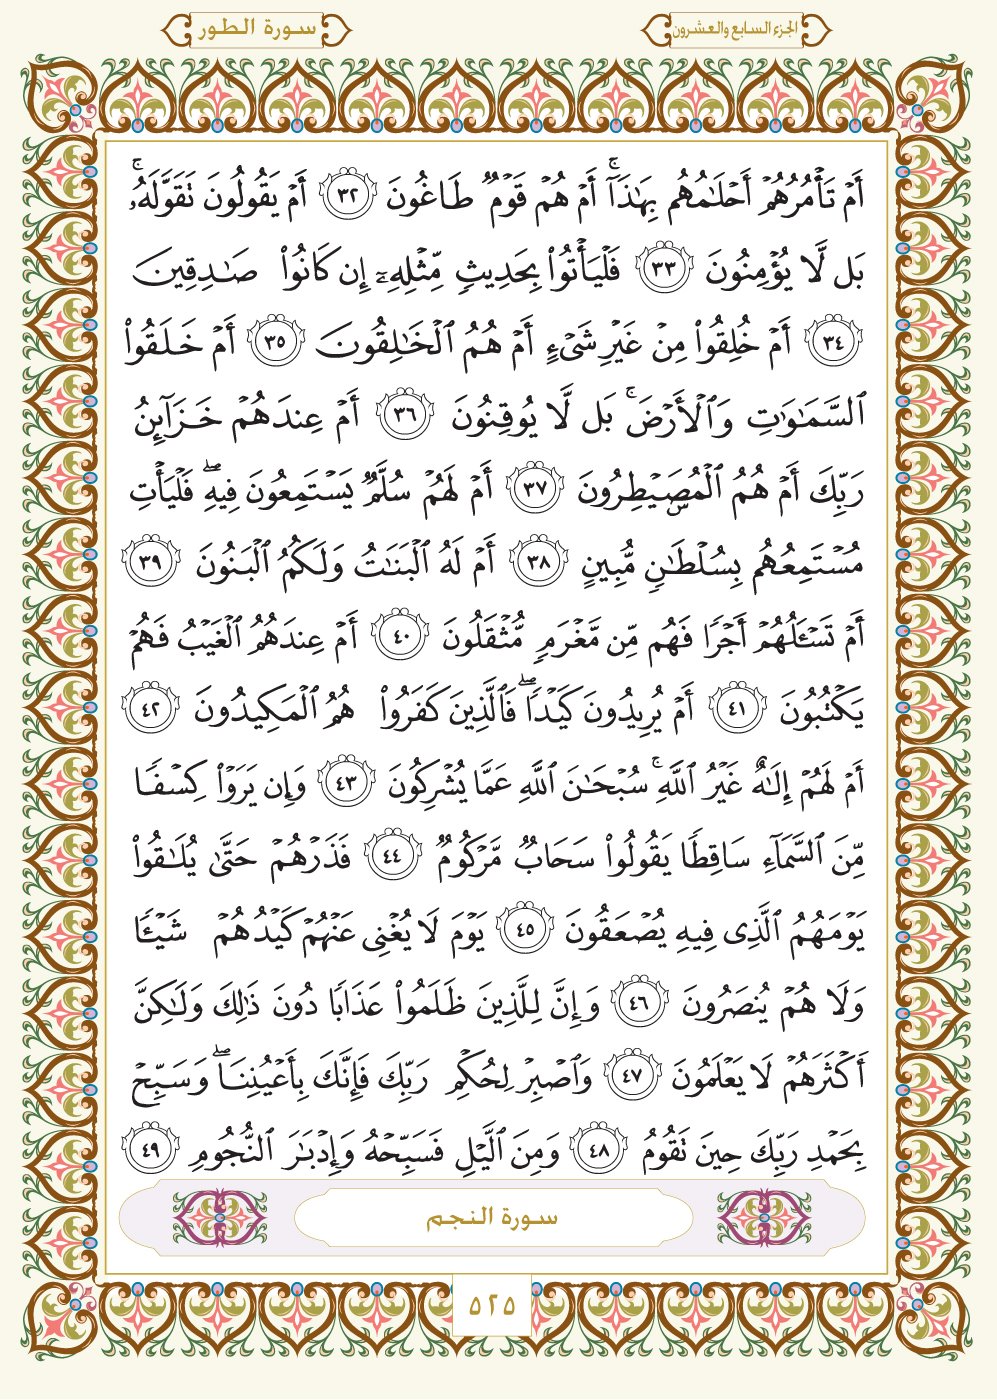 الجزء السابع والعشرون
سورة الطور
أَمۡ تَأۡمُرُهُمۡ أَحۡلَٰمُهُم بِهَٰذَآۚ أَمۡ هُمۡ قَوۡمٞ طَاغُونَ ٣٢ أَمۡ يَقُولُونَ تَقَوَّلَهُۥۚ
بَل لَّا يُؤۡمِنُونَ ٣٣ فَلۡيَأۡتُواْ بِحَدِيثٖ مِّثۡلِهِۦٓ إِن كَانُواْ صَٰدِقِينَ
٣٤ أَمۡ خُلِقُواْ مِنۡ غَيۡرِ شَيۡءٍ أَمۡ هُمُ ٱلۡخَٰلِقُونَ ٣٥ أَمۡ خَلَقُواْ
ٱلسَّمَٰوَٰتِ وَٱلۡأَرۡضَۚ بَل لَّا يُوقِنُونَ ٣٦ أَمۡ عِندَهُمۡ خَزَآئِنُ
رَبِّكَ أَمۡ هُمُ ٱلۡمُصَۜيۡطِرُونَ ٣٧ أَمۡ لَهُمۡ سُلَّمٞ يَسۡتَمِعُونَ فِيهِۖ فَلۡيَأۡتِ
مُسۡتَمِعُهُم بِسُلۡطَٰنٖ مُّبِينٍ ٣٨ أَمۡ لَهُ ٱلۡبَنَٰتُ وَلَكُمُ ٱلۡبَنُونَ ٣٩
أَمۡ تَسۡـَٔلُهُمۡ أَجۡرٗا فَهُم مِّن مَّغۡرَمٖ مُّثۡقَلُونَ ٤٠ أَمۡ عِندَهُمُ ٱلۡغَيۡبُ فَهُمۡ
يَكۡتُبُونَ ٤١ أَمۡ يُرِيدُونَ كَيۡدٗاۖ فَٱلَّذِينَ كَفَرُواْ هُمُ ٱلۡمَكِيدُونَ ٤٢
أَمۡ لَهُمۡ إِلَٰهٌ غَيۡرُ ٱللَّهِۚ سُبۡحَٰنَ ٱللَّهِ عَمَّا يُشۡرِكُونَ ٤٣ وَإِن يَرَوۡاْ كِسۡفٗا
مِّنَ ٱلسَّمَآءِ سَاقِطٗا يَقُولُواْ سَحَابٞ مَّرۡكُومٞ ٤٤ فَذَرۡهُمۡ حَتَّىٰ يُلَٰقُواْ
يَوۡمَهُمُ ٱلَّذِي فِيهِ يُصۡعَقُونَ ٤٥ يَوۡمَ لَا يُغۡنِي عَنۡهُمۡ كَيۡدُهُمۡ شَيۡـٔٗا
وَلَا هُمۡ يُنصَرُونَ ٤٦ وَإِنَّ لِلَّذِينَ ظَلَمُواْ عَذَابٗا دُونَ ذَٰلِكَ وَلَٰكِنَّ
أَكۡثَرَهُمۡ لَا يَعۡلَمُونَ ٤٧ وَٱصۡبِرۡ لِحُكۡمِ رَبِّكَ فَإِنَّكَ بِأَعۡيُنِنَاۖ وَسَبِّحۡ
بِحَمۡدِ رَبِّكَ حِينَ تَقُومُ ٤٨ وَمِنَ ٱلَّيۡلِ فَسَبِّحۡهُ وَإِدۡبَٰرَ ٱلنُّجُومِ ٤٩
سورة النجم
٥٢٥